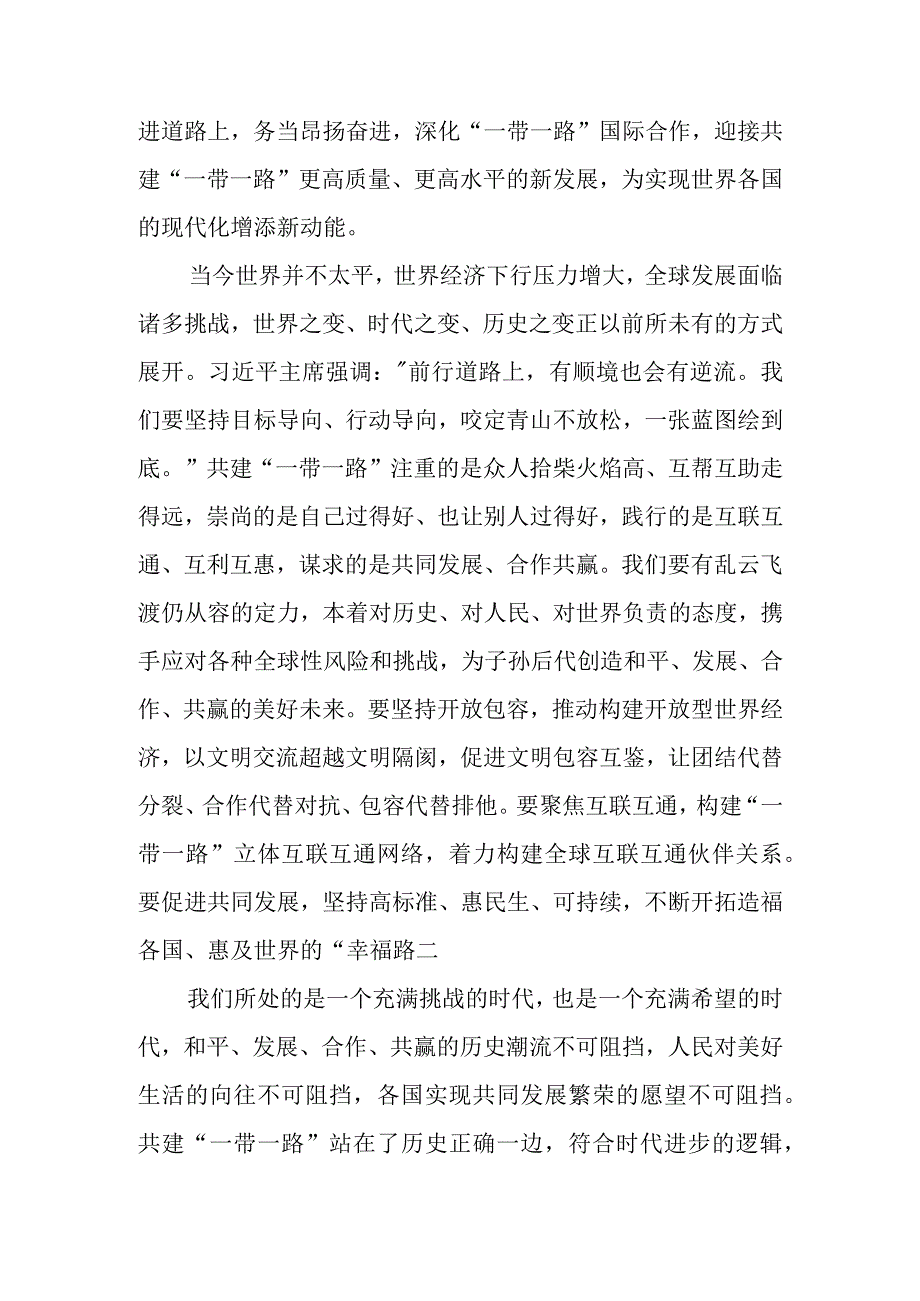 进道路上，务当昂扬奋进，深化“一带一路”国际合作，迎接共
建“一带一路”更高质量、更高水平的新发展，为实现世界各国
的现代化增添新动能。
当今世界并不太平，世界经济下行压力增大，全球发展面临
诸多挑战，世界之变、时代之变、历史之变正以前所未有的方式
展开。习近平主席强调："前行道路上，有顺境也会有逆流。我
们要坚持目标导向、行动导向，咬定青山不放松，一张蓝图绘到
底。”共建“一带一路”注重的是众人拾柴火焰高、互帮互助走
得远，崇尚的是自己过得好、也让别人过得好，践行的是互联互
通、互利互惠，谋求的是共同发展、合作共赢。我们要有乱云飞
渡仍从容的定力，本着对历史、对人民、对世界负责的态度，携
手应对各种全球性风险和挑战，为子孙后代创造和平、发展、合
作、共赢的美好未来。要坚持开放包容，推动构建开放型世界经
济，以文明交流超越文明隔阂，促进文明包容互鉴，让团结代替
分裂、合作代替对抗、包容代替排他。要聚焦互联互通，构建“一
带一路”立体互联互通网络，着力构建全球互联互通伙伴关系。
要促进共同发展，坚持高标准、惠民生、可持续，不断开拓造福
各国、惠及世界的“幸福路二
我们所处的是一个充满挑战的时代，也是一个充满希望的时
代，和平、发展、合作、共赢的历史潮流不可阻挡，人民对美好
生活的向往不可阻挡，各国实现共同发展繁荣的愿望不可阻挡。
共建“一带一路”站在了历史正确一边，符合时代进步的逻辑，